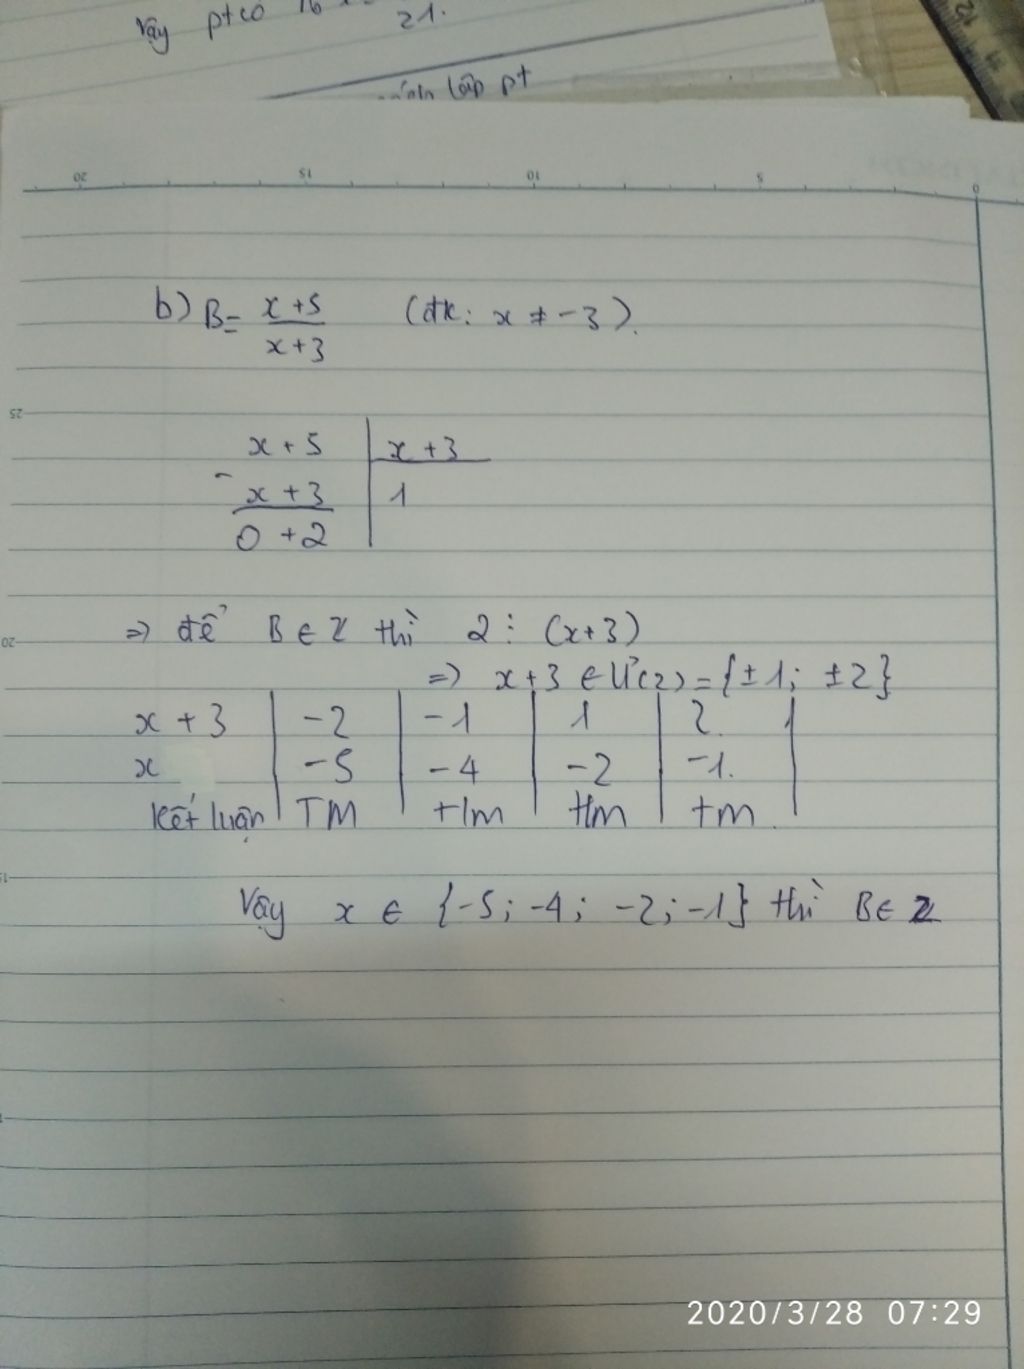 Vậy pt có
21.
lập pt
20 15 10 5 0
b) B = x+5 / x+3 (đk: x ≠ -3).
25
x + 5 | x + 3
- x + 3 | 1
0 + 2
20
=> để B ∈ Z thì 2 ⋮ (x+3)
=> x+3 ∈ Ư(2) = {±1; ±2}
x + 3 | -2 | -1 | 1 | 2 |
x | -5 | -4 | -2 | -1. |
Kết luận | TM | t/m | t/m | tm. |
15
Vậy x ∈ {-5; -4; -2; -1} thì B ∈ Z
2020/3/28 07:29